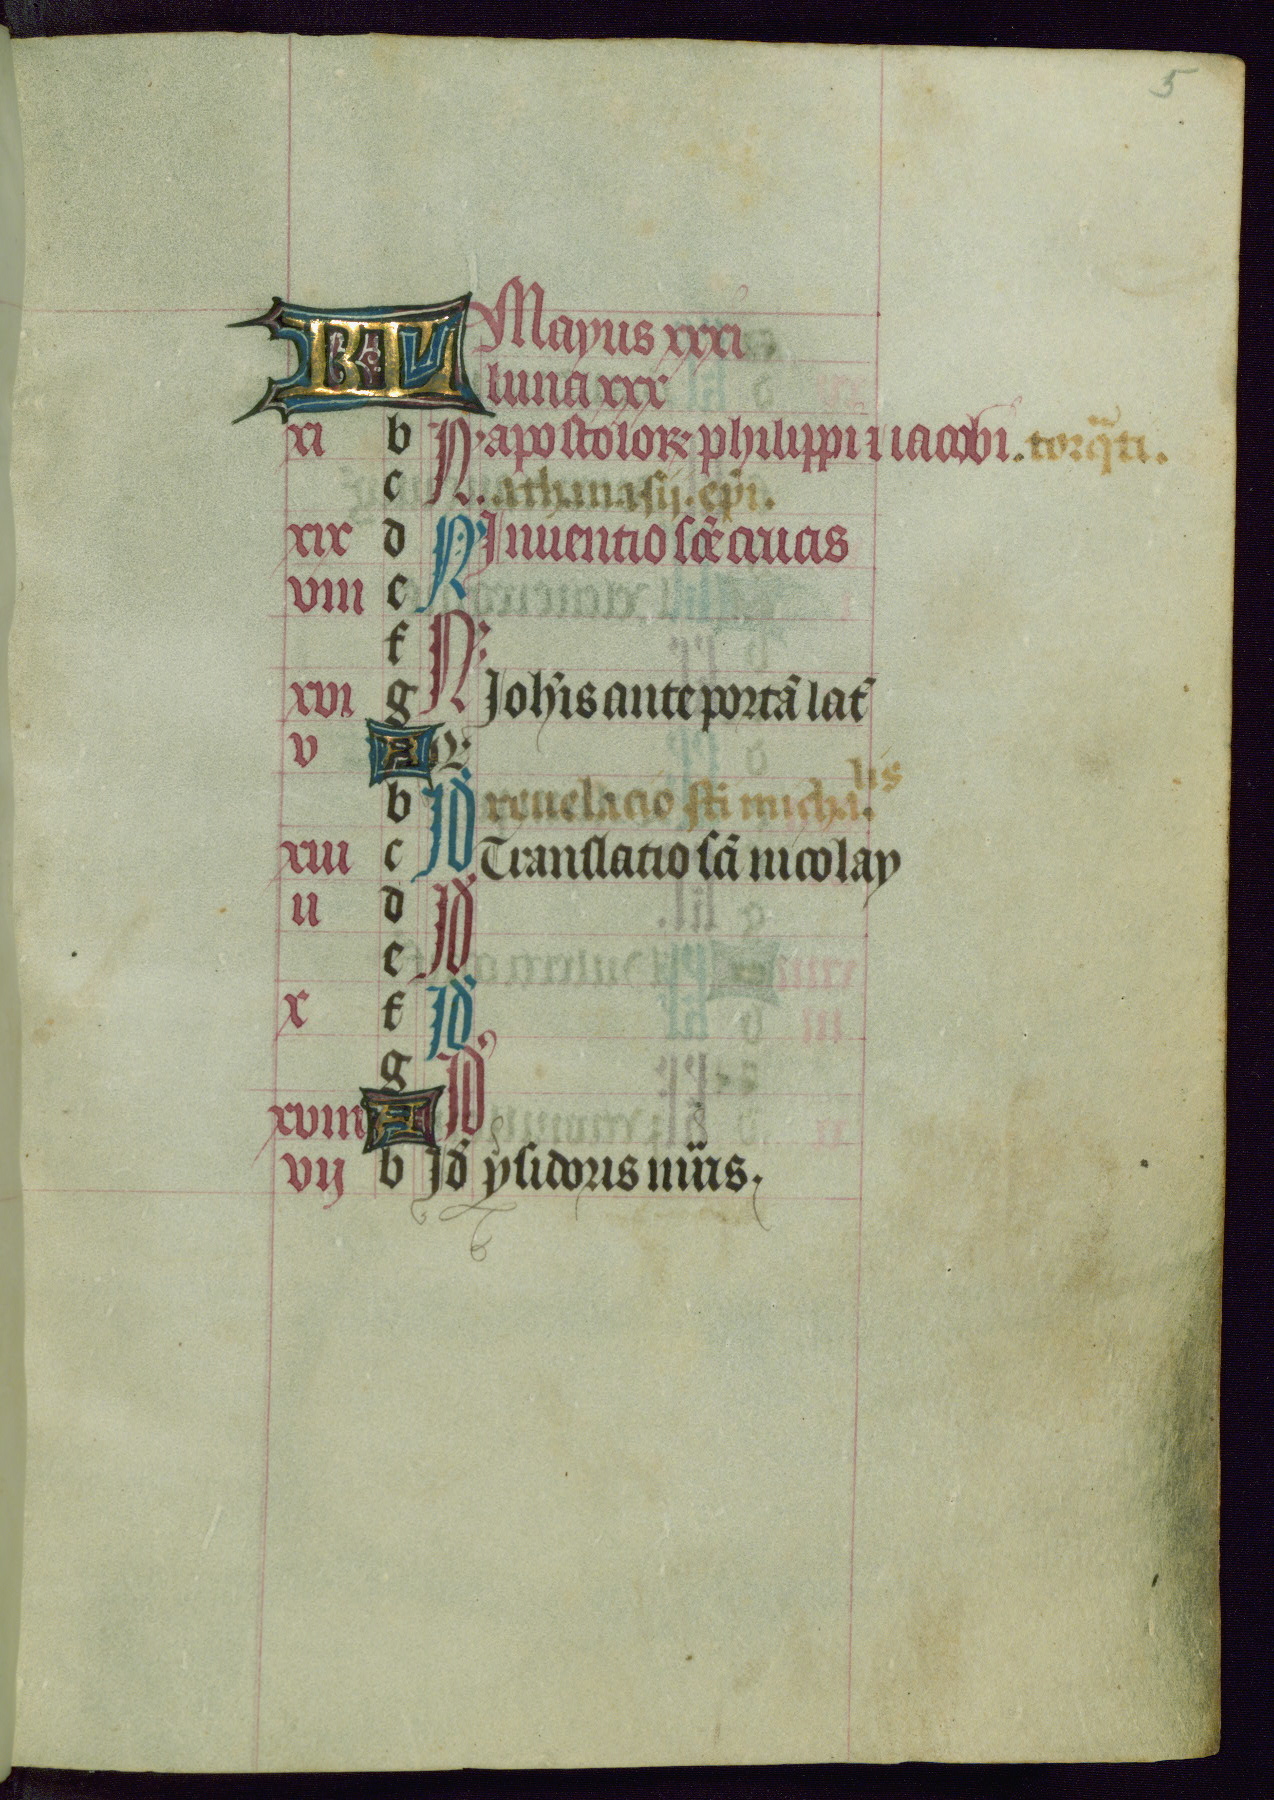 5
KL Mayus xxxi
luna xxx
xi b N apostolorꝝ philippi ⁊ iacobi. torq̃ti.
c N. athanasij. epi.
xix d N Inuentio scē crucis
viii e N
f N
xvi g N Joh̄is ante portā lat̄
v A
b Id reuelacio sti micha.lis
xiii c Id Translatio scī nicolay
ii d Id
e Id
x f Id
g Id
xviii A
vij b Id ysidoris mr̄is.